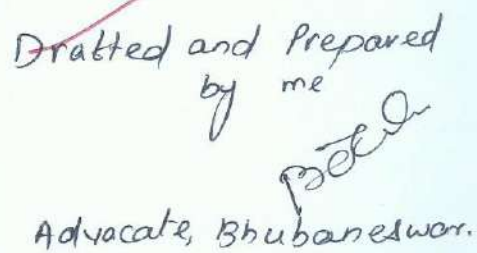 Drafted and Prepared
by me
Advacate, Bhubaneswar.